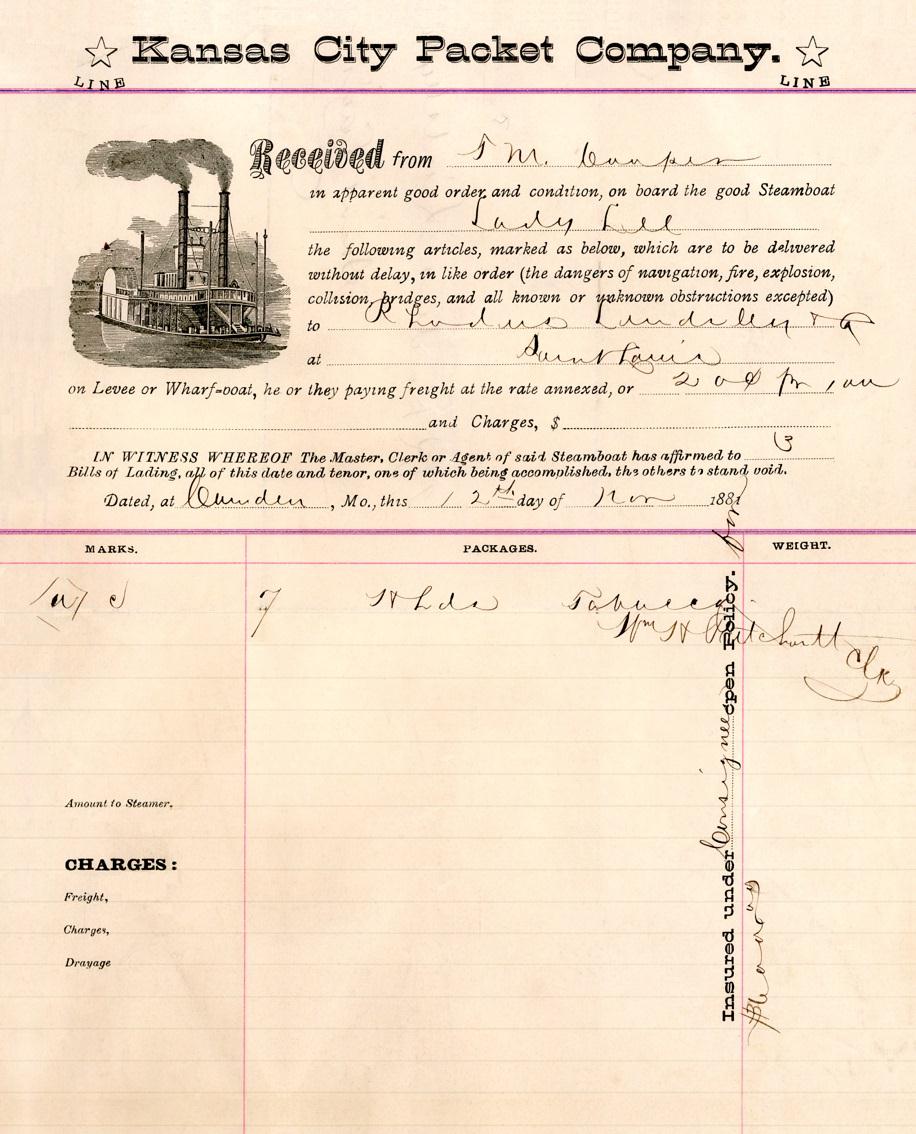 Kansas City Packet Company.
LINE LINE
Received from T M. Cooper
in apparent good order, and condition, on board the good Steamboat
Lady Lee
the following articles, marked as below, which are to be delivered
without delay, in like order (the dangers of navigation, fire, explosion,
collision, bridges, and all known or unknown obstructions excepted)
to
at Saint Louis
on Levee or Wharf-boat, he or they paying freight at the rate annexed, or 20¢ pr
and Charges, $
IN WITNESS WHEREOF The Master, Clerk or Agent of said Steamboat has affirmed to 3
Bills of Lading, all of this date and tenor, one of which being accomplished, the others to stand void.
Dated, at Camden, Mo., this 12th day of Nov 1881
MARKS. PACKAGES. WEIGHT.
7 Hhds Tobacco
Wm H Clk
Insured under Consignees open Policy. for
Amount to Steamer.
CHARGES:
Freight,
Charges,
Drayage